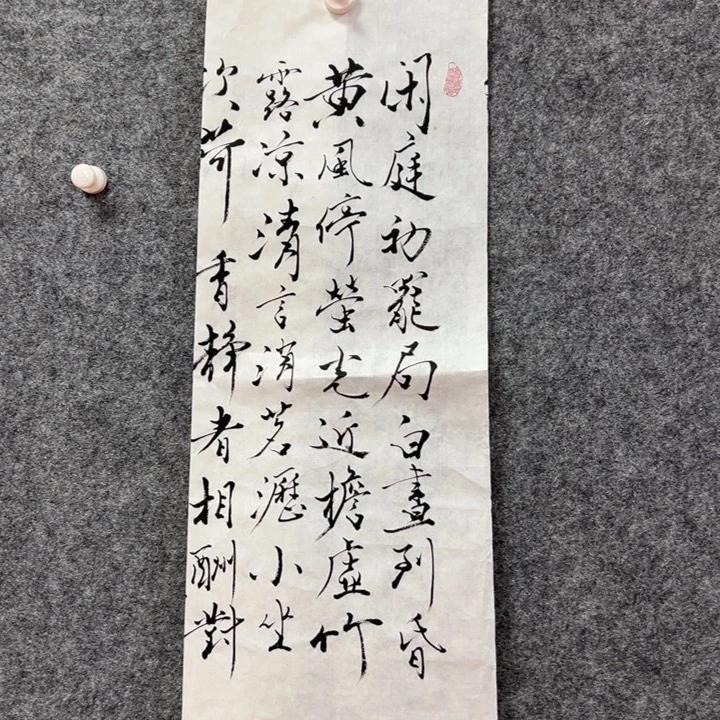 闲庭初罷局白晝列昏
黄風停螢光近檐虚竹
露凉清言消茗瀝小坐
次荷香静者相酬對